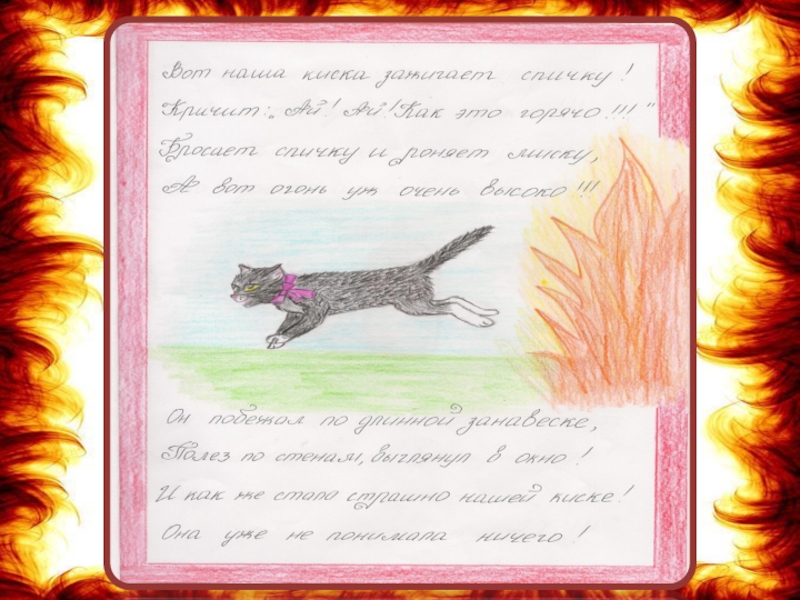 Вот наша киска зажигает спичку!
Кричит: „Ай! Ай! Как это горячо!!!"
Бросает спичку и роняет миску,
А вот огонь уж очень высоко!!!
Он побежал по длинной занавеске,
Полез по стенам, выглянул в окно!
И как же стало страшно нашей киске!
Она уже не понимала ничего!